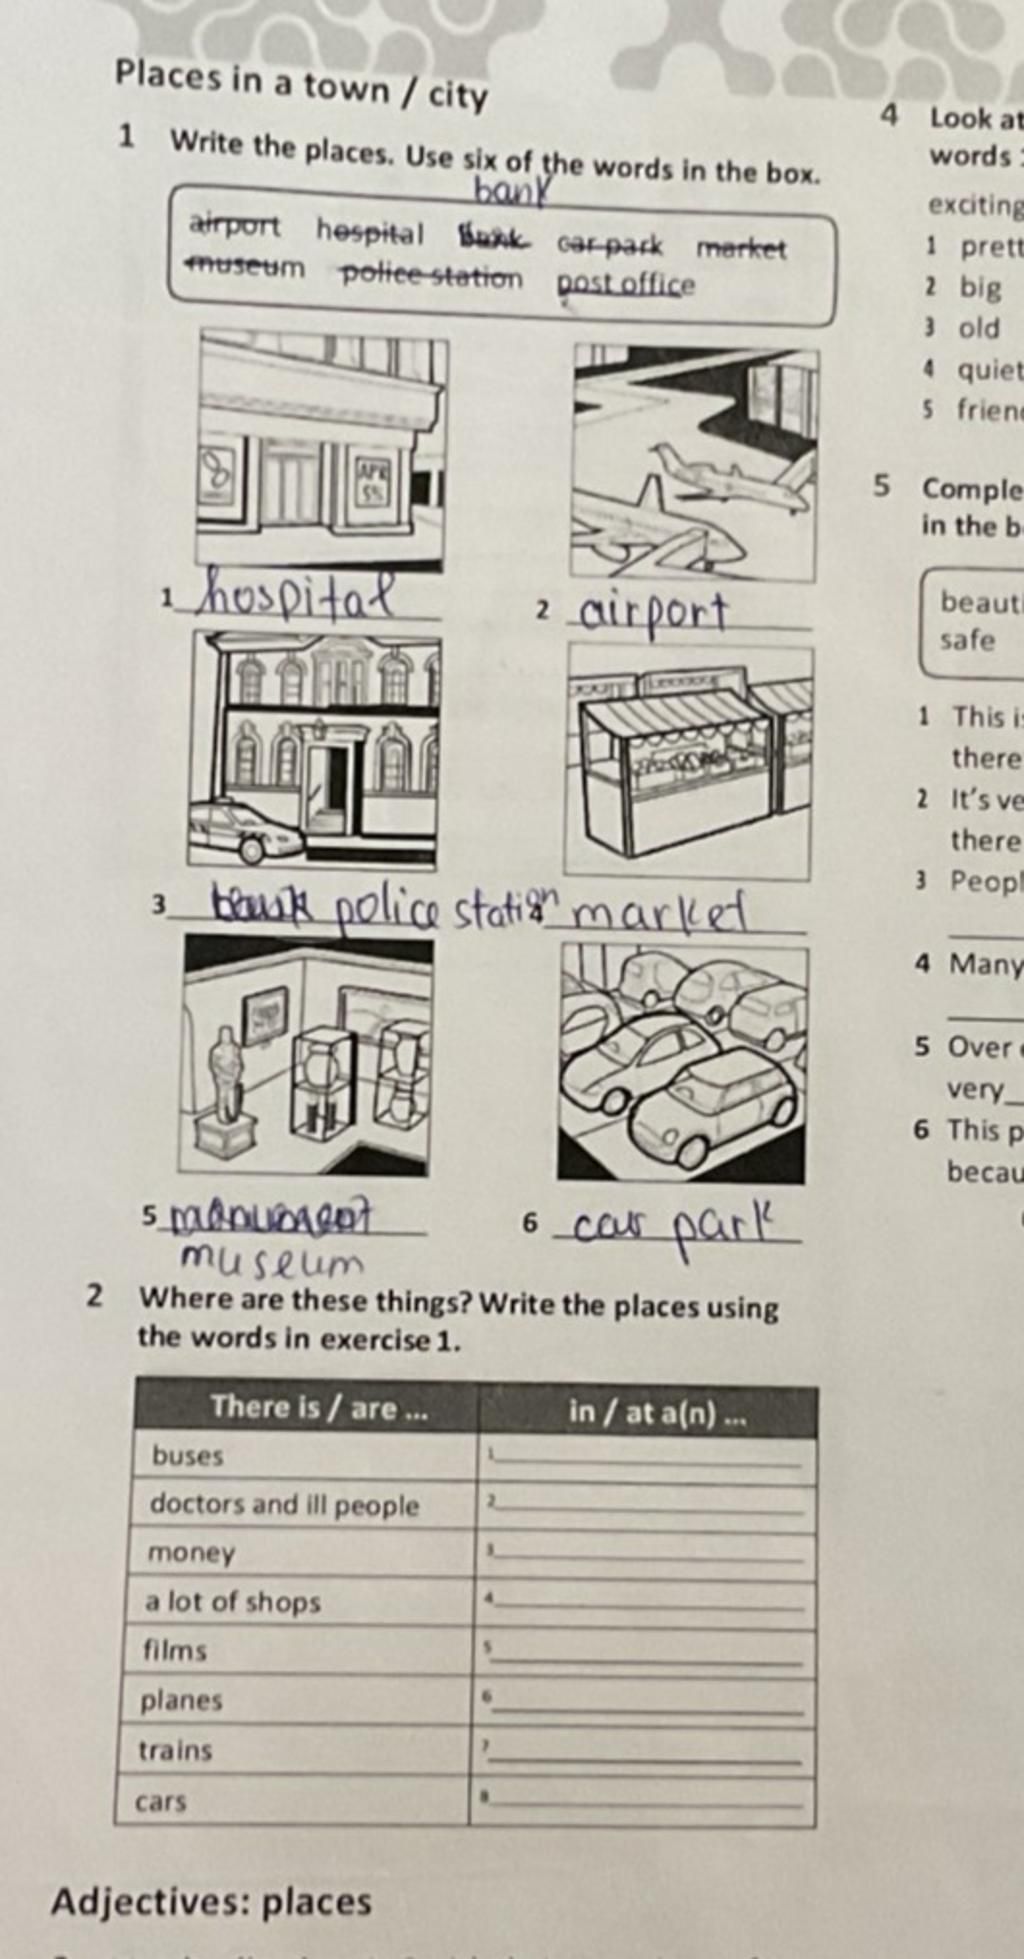 Places in a town / city
1 Write the places. Use six of the words in the box.
bank
airport hospital bank car park market
museum police station post office
APR
5%
1 hospital
2 airport
3 police station
4 market
5 monument
museum
6 car park
2 Where are these things? Write the places using
the words in exercise 1.
There is / are ... in / at a(n) ...
buses 1
doctors and ill people 2
money 3
a lot of shops 4
films 5
planes 6
trains 7
cars 8
Adjectives: places
4 Look at
words
exciting
1 prett
2 big
3 old
4 quiet
5 frien
5 Comple
in the b
beauti
safe
1 This i
there
2 It's ve
there
3 Peopl
4 Many
5 Over
very
6 This p
becau